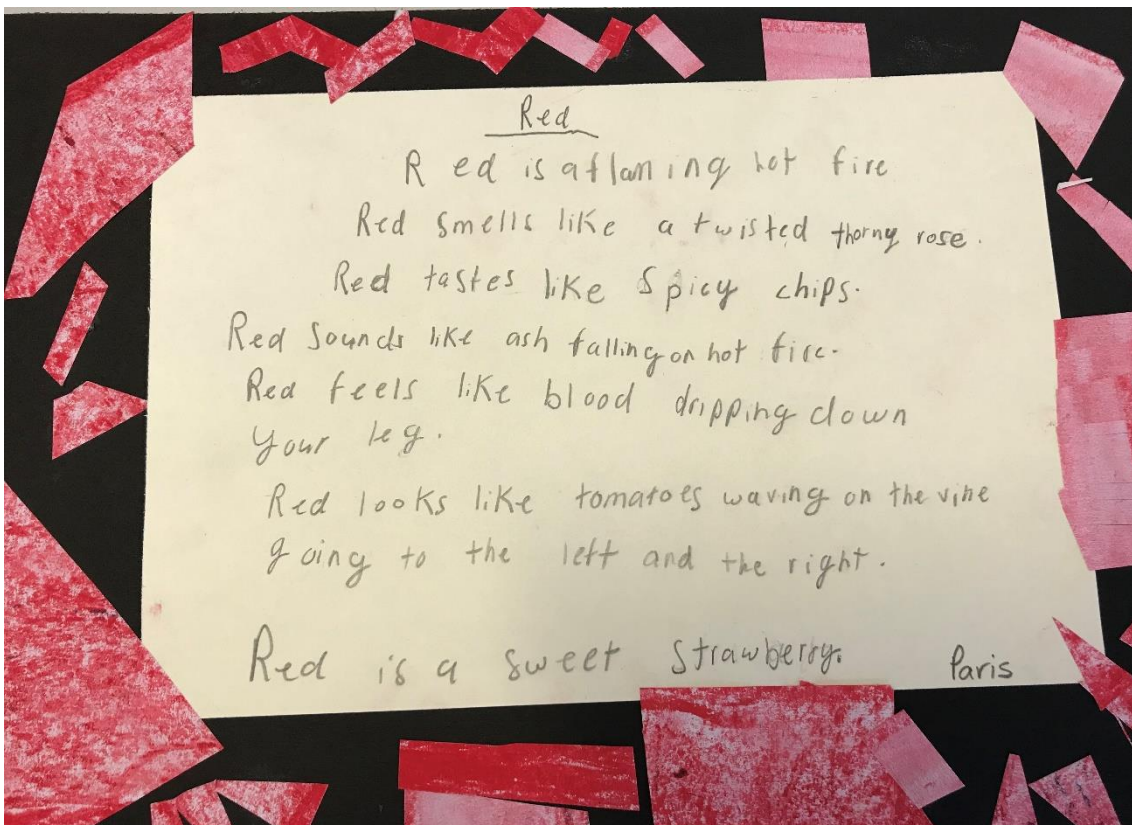 Red
Red is a flaming hot fire
Red smells like a twisted thorny rose.
Red tastes like spicy chips.
Red sounds like ash falling on hot fire.
Red feels like blood dripping down
your leg.
Red looks like tomatoes waving on the vine
going to the left and the right.
Red is a sweet strawberry.
Paris